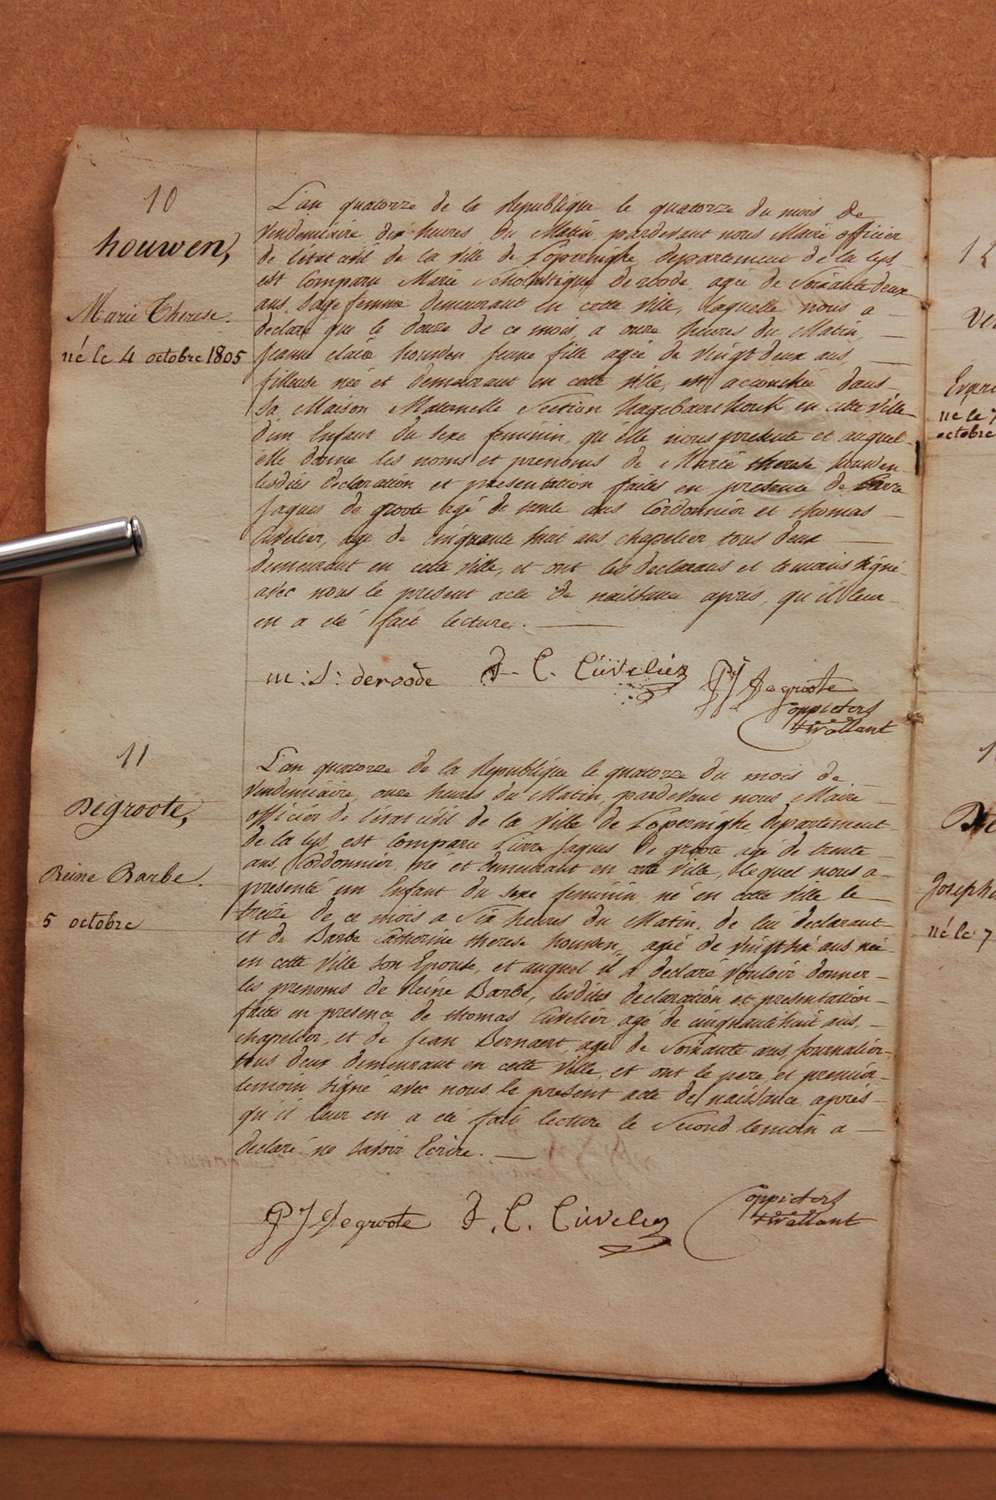 10
houwen,
Marie Therese.
né le 4 octobre 1805
L'an quatorze de la Republique le quatorze du mois de
Vendemiaire dix heures du Matin pardevant nous Maire officier
de l'état civil de la ville de Poperinghe, departement de la Lys
est Comparu Marie Scholastique Deroode, agée de Soixante deux
ans, Sage femme demeurant en cette ville, laquelle nous a
declaré que le douze de ce mois, a onze heures du Matin,
Jeanne claire houwen jeune fille agée de vingt deux ans,
fileuse née et demeurant en cette ville, est accouchée dans
sa Maison Maternelle Section en cette ville
d'un Enfant du sexe feminin, qu'elle nous presente et auquel
elle donne les noms et prenoms de Marie therese houwen
lesdites declaration et presentation faites en presence de Pierre
Jaques de groote agé de trente ans Cordonnier et thomas
Cuvelier, age de cinquante huit ans chapelier, tous deux
demeurant en cette ville, et ont les declarans et temoins signé
avec nous le present acte de naissance après, qu'il leur
en a été fait lecture.
m: S: deroode T. C. Cuvelier PJ Degroote
Coppieters
t'wallant
11
Degroote,
Reine Barbe.
5 octobre
L'an quatorze de la Republique le quatorze du mois de
Vendemiaire, onze heures du Matin pardevant nous Maire
officier de l'état civil de la ville de Poperinghe departement
de la Lys est Comparu Pierre Jaques De groote agé de trente
ans, Cordonnier, né et demeurant en cette ville, lequel nous a
presenté un Enfant du sexe feminin né en cette ville le
treize de ce mois a Six heures du Matin, de lui declarant
et de Barbe Catherine therese houwen, agé de ans née
en cette ville son Epouse, et auquel il a declaré vouloir donner
les prenoms de Reine Barbe, lesdites declaration et presentation
faites en presence de thomas Cuvelier agé de cinquante huit ans,
chapelier, et de Jean Bernaert, agé de Soixante ans journalier
tous deux demeurant en cette ville, et ont le pere et premier
temoin signé avec nous le present acte de naissance après
qu'il leur en a été fait lecture le Second temoin a
declaré ne savoir Ecrire.
PJ Degroote T. C. Cuvelier Coppieters
t'wallant
12
Ver
né le 7
octobre
1
Joseph
né le 7